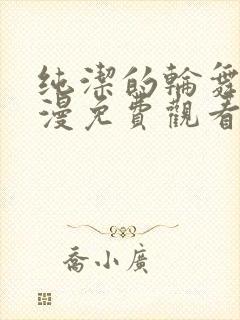 纯潔的輪舞
漫免費觀看
喬小廣